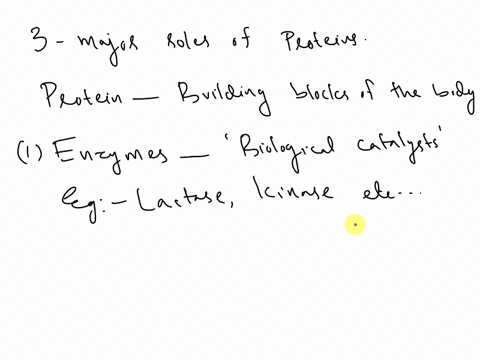 3 - major roles of Proteins.
Protein — Building blocks of the body
(1) Enzymes — 'Biological catalysts'
Eg:- Lactase, kinase etc...